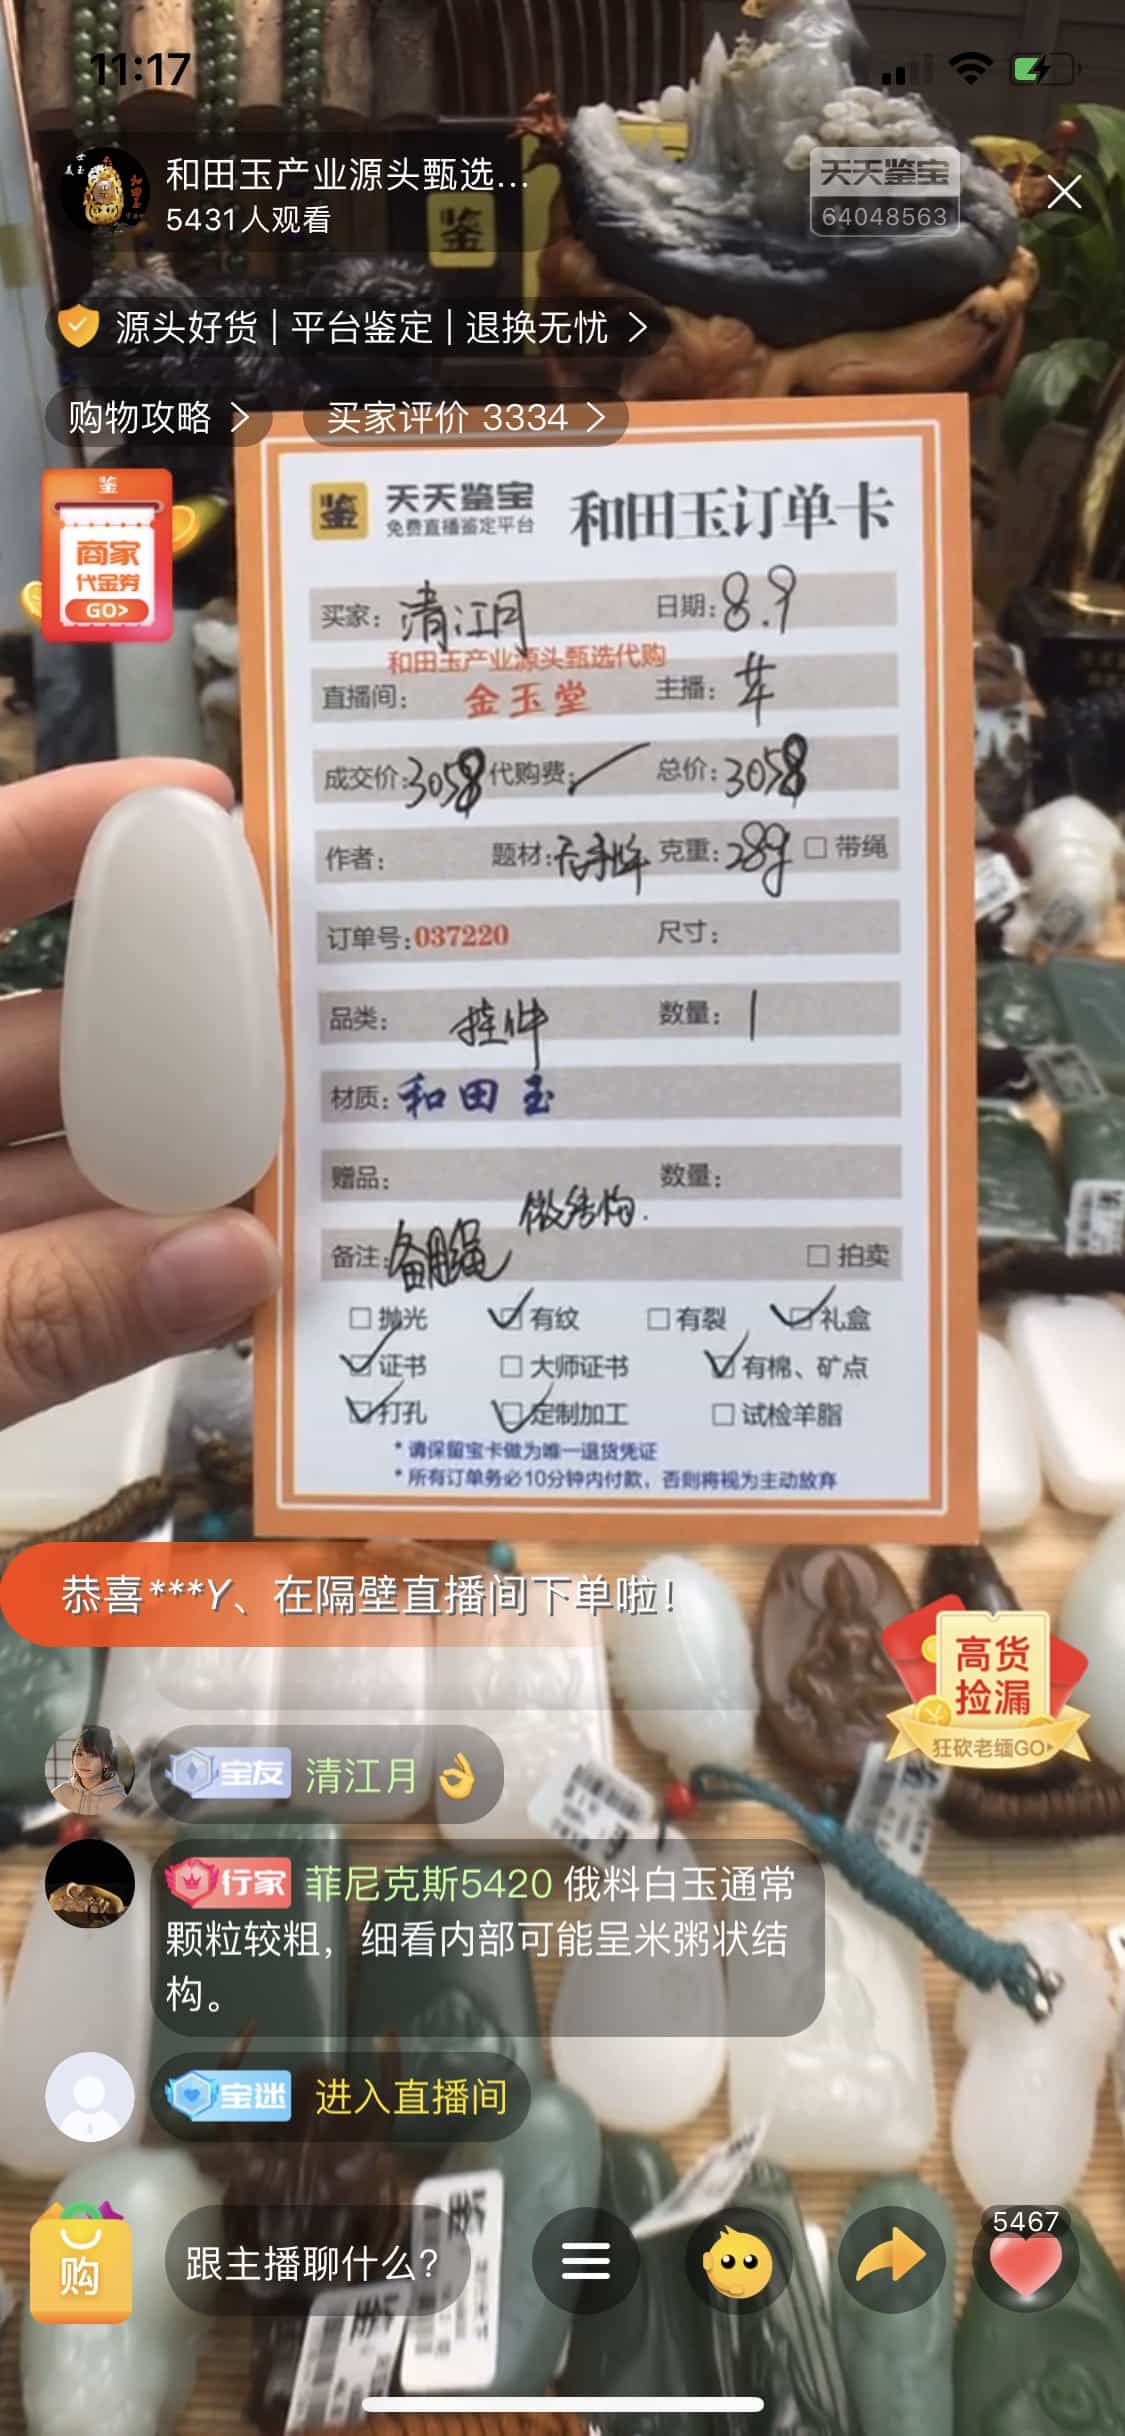 11:17
和田玉产业源头甄选...
5431人观看
天天鉴宝
64048563
鉴
源头好货 | 平台鉴定 | 退换无忧 >
购物攻略 >
买家评价 3334 >
鉴
商家
代金券
GO>
鉴 天天鉴宝
免费直播鉴定平台
和田玉订单卡
买家: 清江月 日期: 8.9
和田玉产业源头甄选代购
直播间: 金玉堂 主播:
成交价: 3058 代购费: 总价: 3058
作者: 题材: 克重: 28g 带绳
订单号: 037220 尺寸:
品类: 挂件 数量: 1
材质: 和田玉
赠品: 数量:
微结构.
备注: 绳 拍卖
抛光 有纹 有裂 礼盒
证书 大师证书 有棉、矿点
打孔 定制加工 试检羊脂
*请保留宝卡做为唯一退货凭证
*所有订单务必10分钟内付款，否则将视为主动放弃
恭喜***Y、在隔壁直播间下单啦！
高货
捡漏
狂砍老缅GO
宝友 清江月 👌
行家 菲尼克斯5420 俄料白玉通常
颗粒较粗，细看内部可能呈米粥状结
构。
宝迷 进入直播间
购
跟主播聊什么?
5467